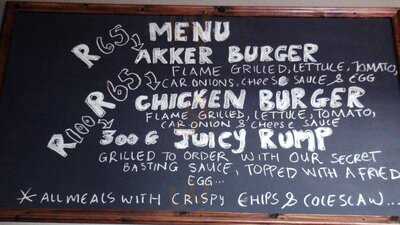 MENU
R65, AKKER BURGER
FLAME GRILLED, LETTUCE, TOMATO,
CAR ONIONS, CHEESE SAUCE & EGG
R65, CHICKEN BURGER
FLAME GRILLED, LETTUCE, TOMATO,
CAR ONION & CHEESE SAUCE
R100 300 G JUICY RUMP
GRILLED TO ORDER WITH OUR SECRET
BASTING SAUCE, TOPPED WITH A FRIED
EGG...
* ALL MEALS WITH CRISPY CHIPS & COLESLAW...